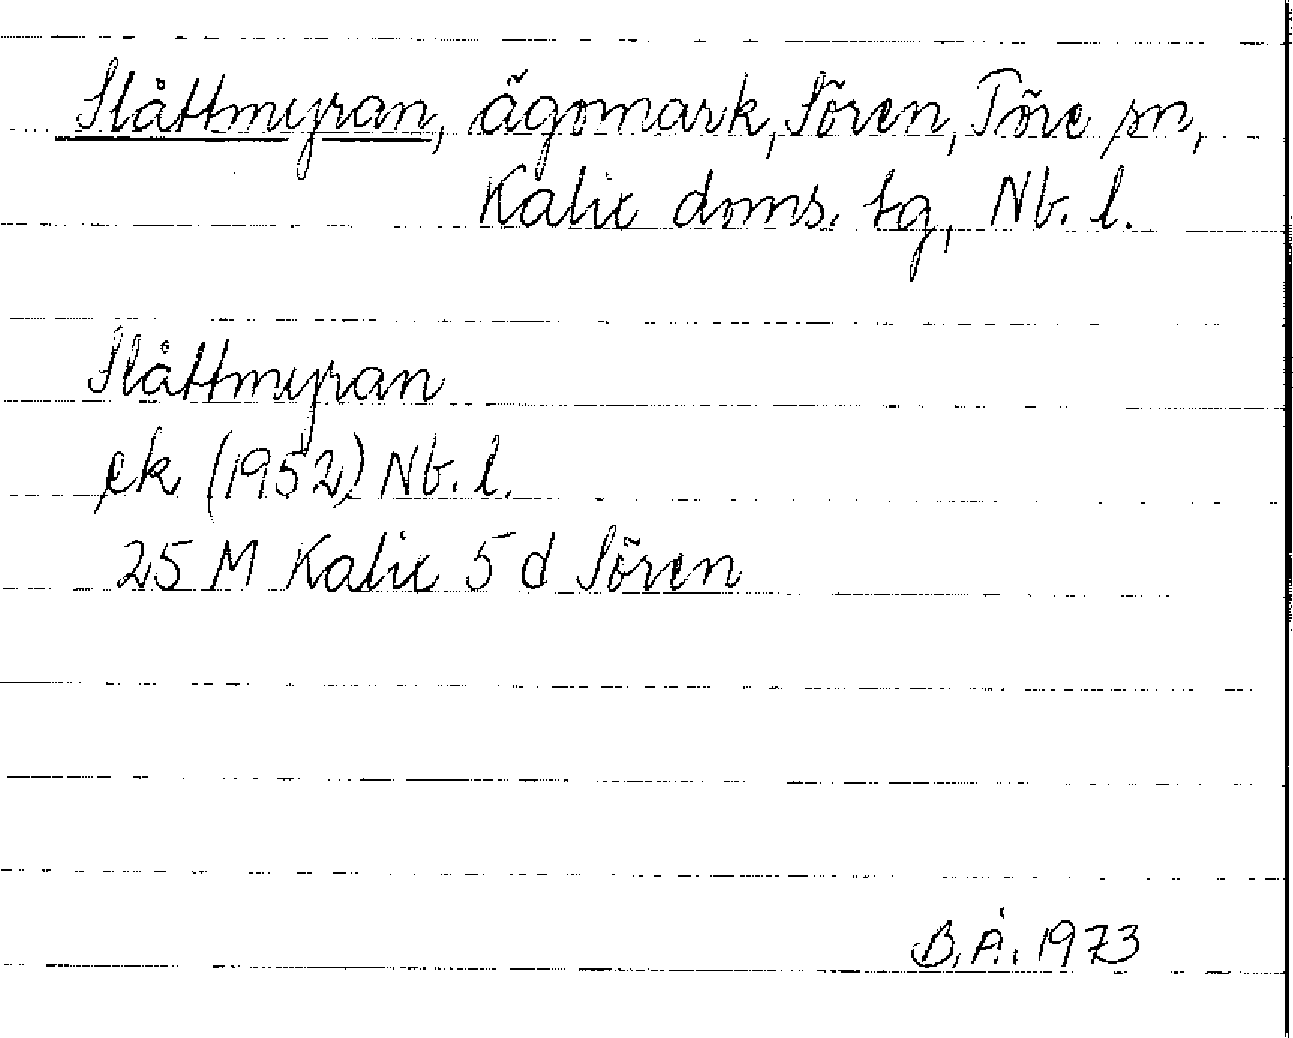 Slåttmyran, ägomark, Sören, Töre sn,
Kalix doms. tg, Nb. l.
Slåttmyran
ek (1952) Nb. l.
25 M Kalix 5 d Sören
B.Å. 1973